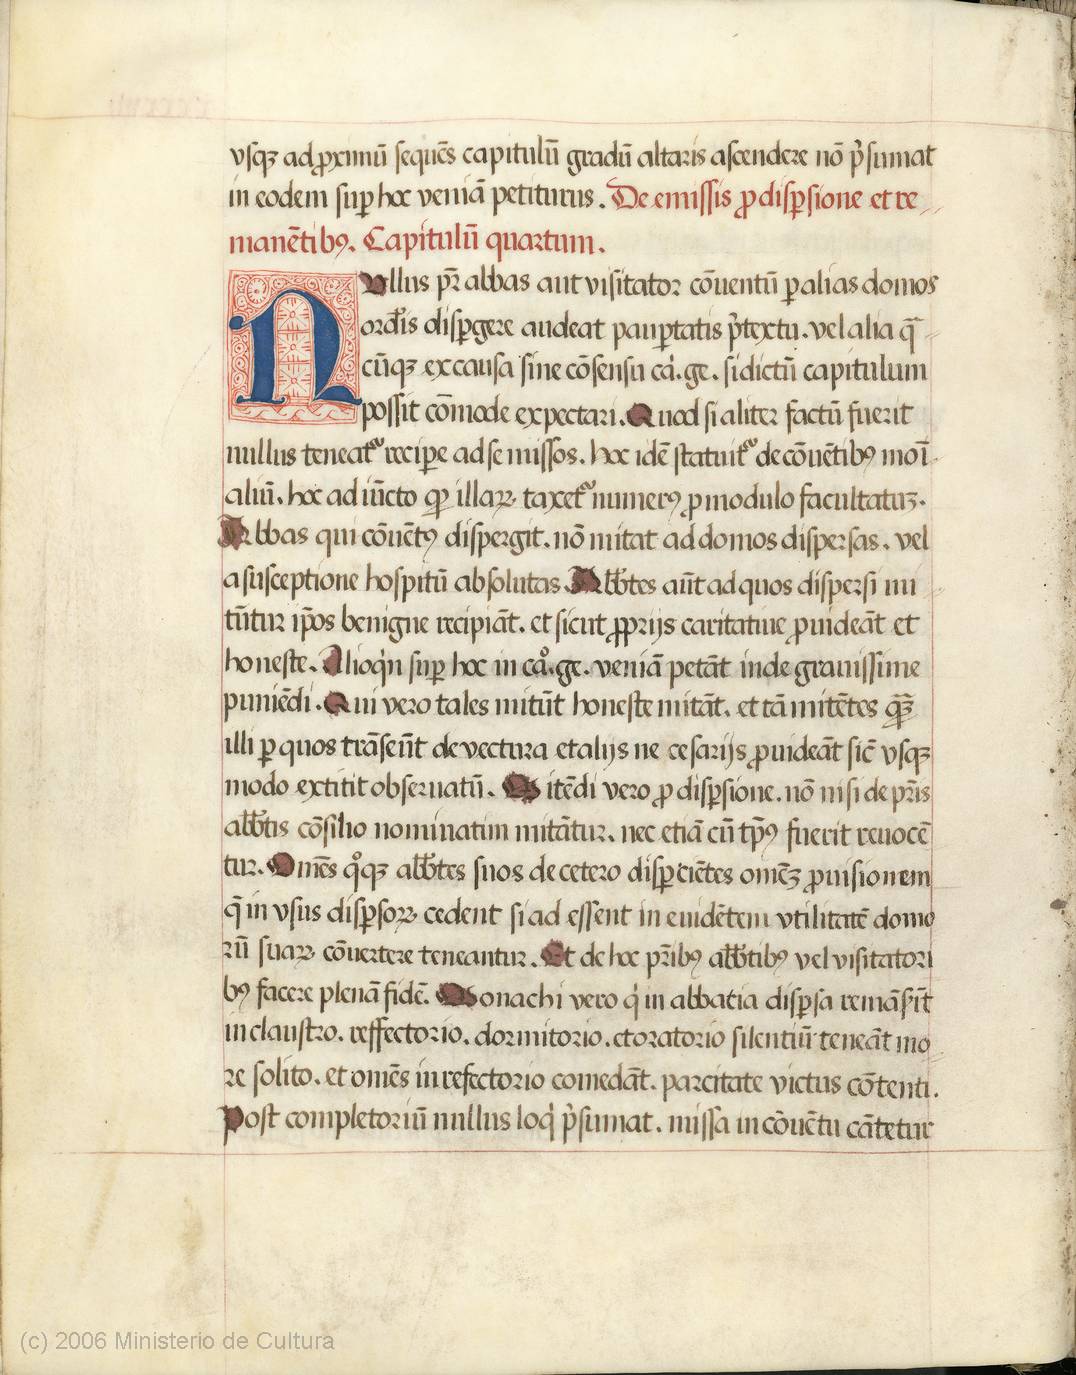 vsqꝫ ad ꝓximū sequēs capitulū gradū altaris ascendere nō p̄sumat
in eodem suꝑ hoc veniā petiturus. De emissis ꝓ disꝑsione et re
manētibꝯ. Capitulū quartum.
Nullus pr̄ abbas aut visitator cōuentū ꝑ alias domos
ordīs disꝑgere audeat pauꝑtatis p̄textu. vel alia q̄
cūqꝫ ex causa sine cōsensu ca. ge. si dictū capitulum
possit cōmode expectari. Quod si aliter factū fuerit
nullus teneat᷑ reciꝑe ad se missos. hoc idē statuit᷑ de cōuētibꝯ moī
aliū. hoc adiūcto qꝫ illaꝝ taxet᷑ numerꝯ ꝓ modulo facultatuꝫ.
Abbas qui cōuētꝯ dispergit. nō mitat ad domos dispersas. vel
a susceptione hospitū absolutas. Abb̄tes aūt ad quos dispersi mi
tūtur ip̄os benigne recipiāt. et sicut ꝓprijs caritatiue ꝓuideāt et
honeste. Alioqⁱn suꝑ hoc in caᵒ. ge. veniā petāt inde grauissime
puniēdi. Qui vero tales mitūt honeste mitāt. et tā mitētes qꝫ
illi ꝑ quos trāseūt de vectura et alijs necesarijs ꝓuideāt sic̄ vsqꝫ
modo extitit obseruatū. Mitēdi vero ꝓ disꝑsione. nō nisi de pr̄is
abb̄tis cōsilio nominatim mitātur. nec etiā cū tp̄ꝯ fuerit reuocē
tur. Omēs qᵒqꝫ abb̄tes suos de cetero disꝑciētes omēꝫ ꝓuisionem
q̄ in vsus disꝑsoꝝ cedent si adessent in euidētem vtilitatē domo
rū suaꝝ cōuertere teneantur. Et de hoc pr̄ibꝯ abb̄tibꝯ vel visitatori
bꝯ facere plenā fidē. Monachi vero qⁱ in abbatia disꝑsa remāsīt
in claustro. reffectorio. dormitorio. et oratorio silentiū teneāt mo
re solito. et omēs in refectorio comedāt. parcitate victus cōtenti.
Post completoriū nullus loqⁱ p̄sumat. missa in cōuētu cātetur
(c) 2006 Ministerio de Cultura